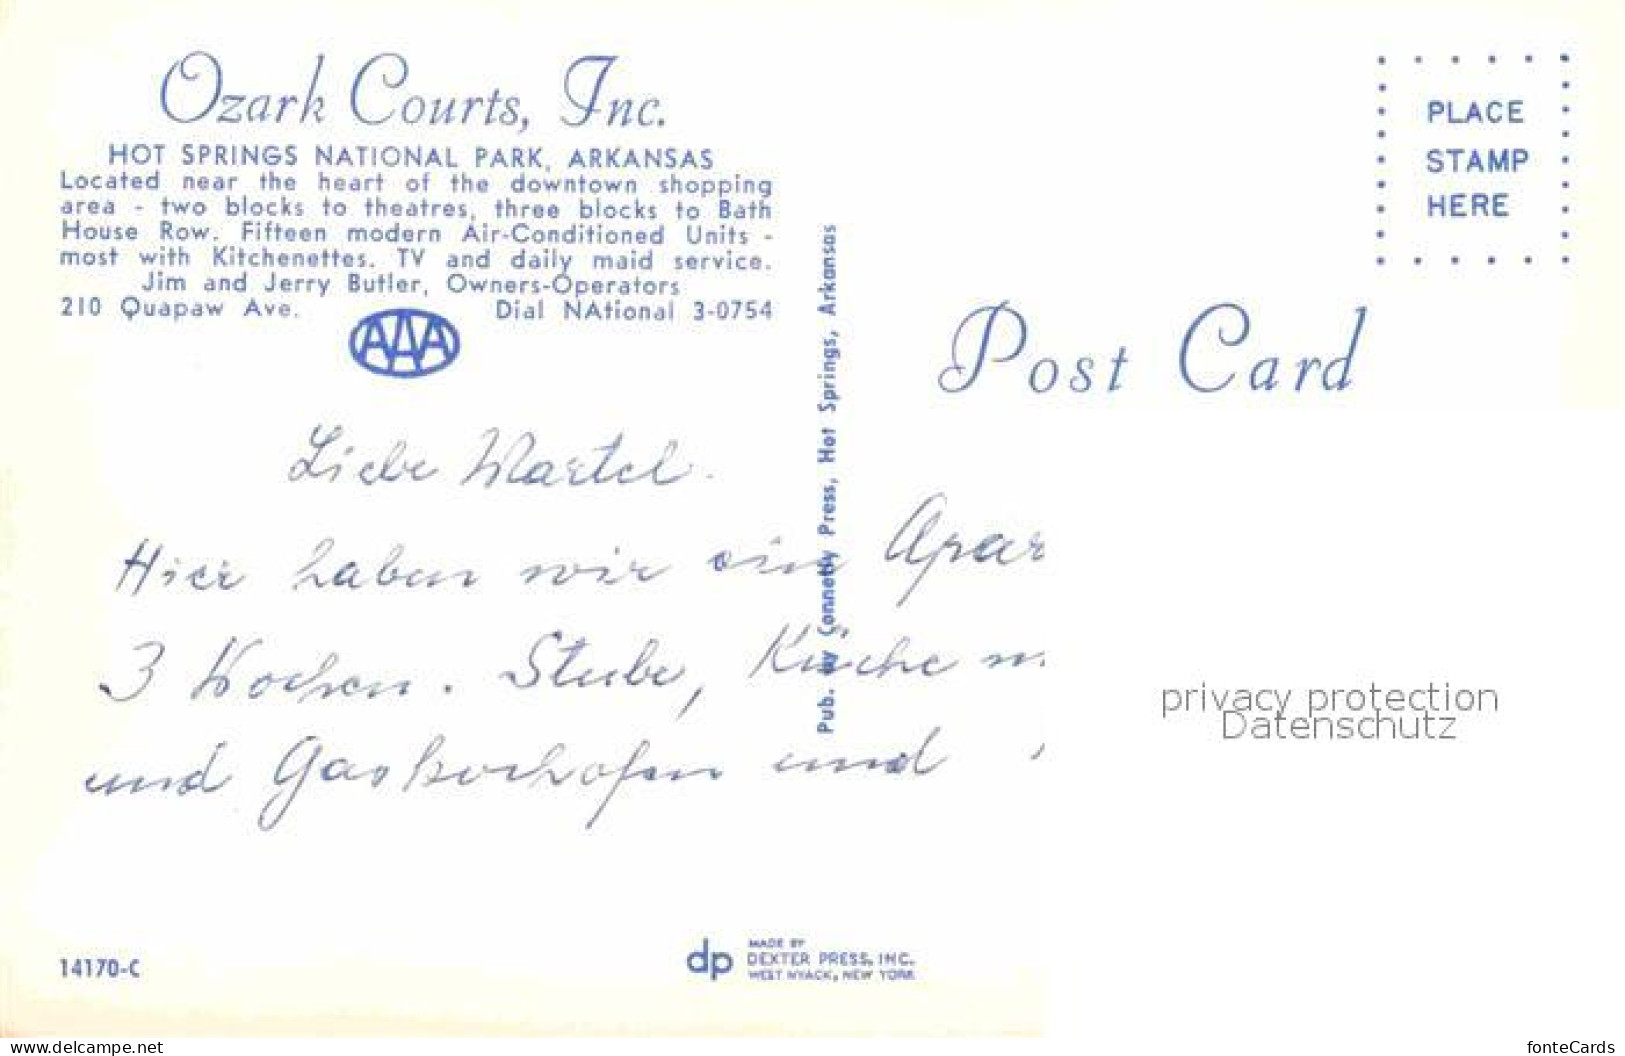 Ozark Courts, Inc.
HOT SPRINGS NATIONAL PARK, ARKANSAS
Located near the heart of the downtown shopping
area - two blocks to theatres, three blocks to Bath
House Row. Fifteen modern Air-Conditioned Units -
most with Kitchenettes. TV and daily maid service.
Jim and Jerry Butler, Owners-Operators
210 Quapaw Ave. Dial NAtional 3-0754
AAA
PLACE
STAMP
HERE
Post Card
Pub. by Connelly Press, Hot Springs, Arkansas
Liebe Martel.
Hier haben wir ein Apar
3 Wochen. Stube, Küche
und Gaskochofen und
privacy protection
Datenschutz
14170-C
dp
MADE BY
DEXTER PRESS, INC.
WEST NYACK, NEW YORK
www.delcampe.net
fonteCards